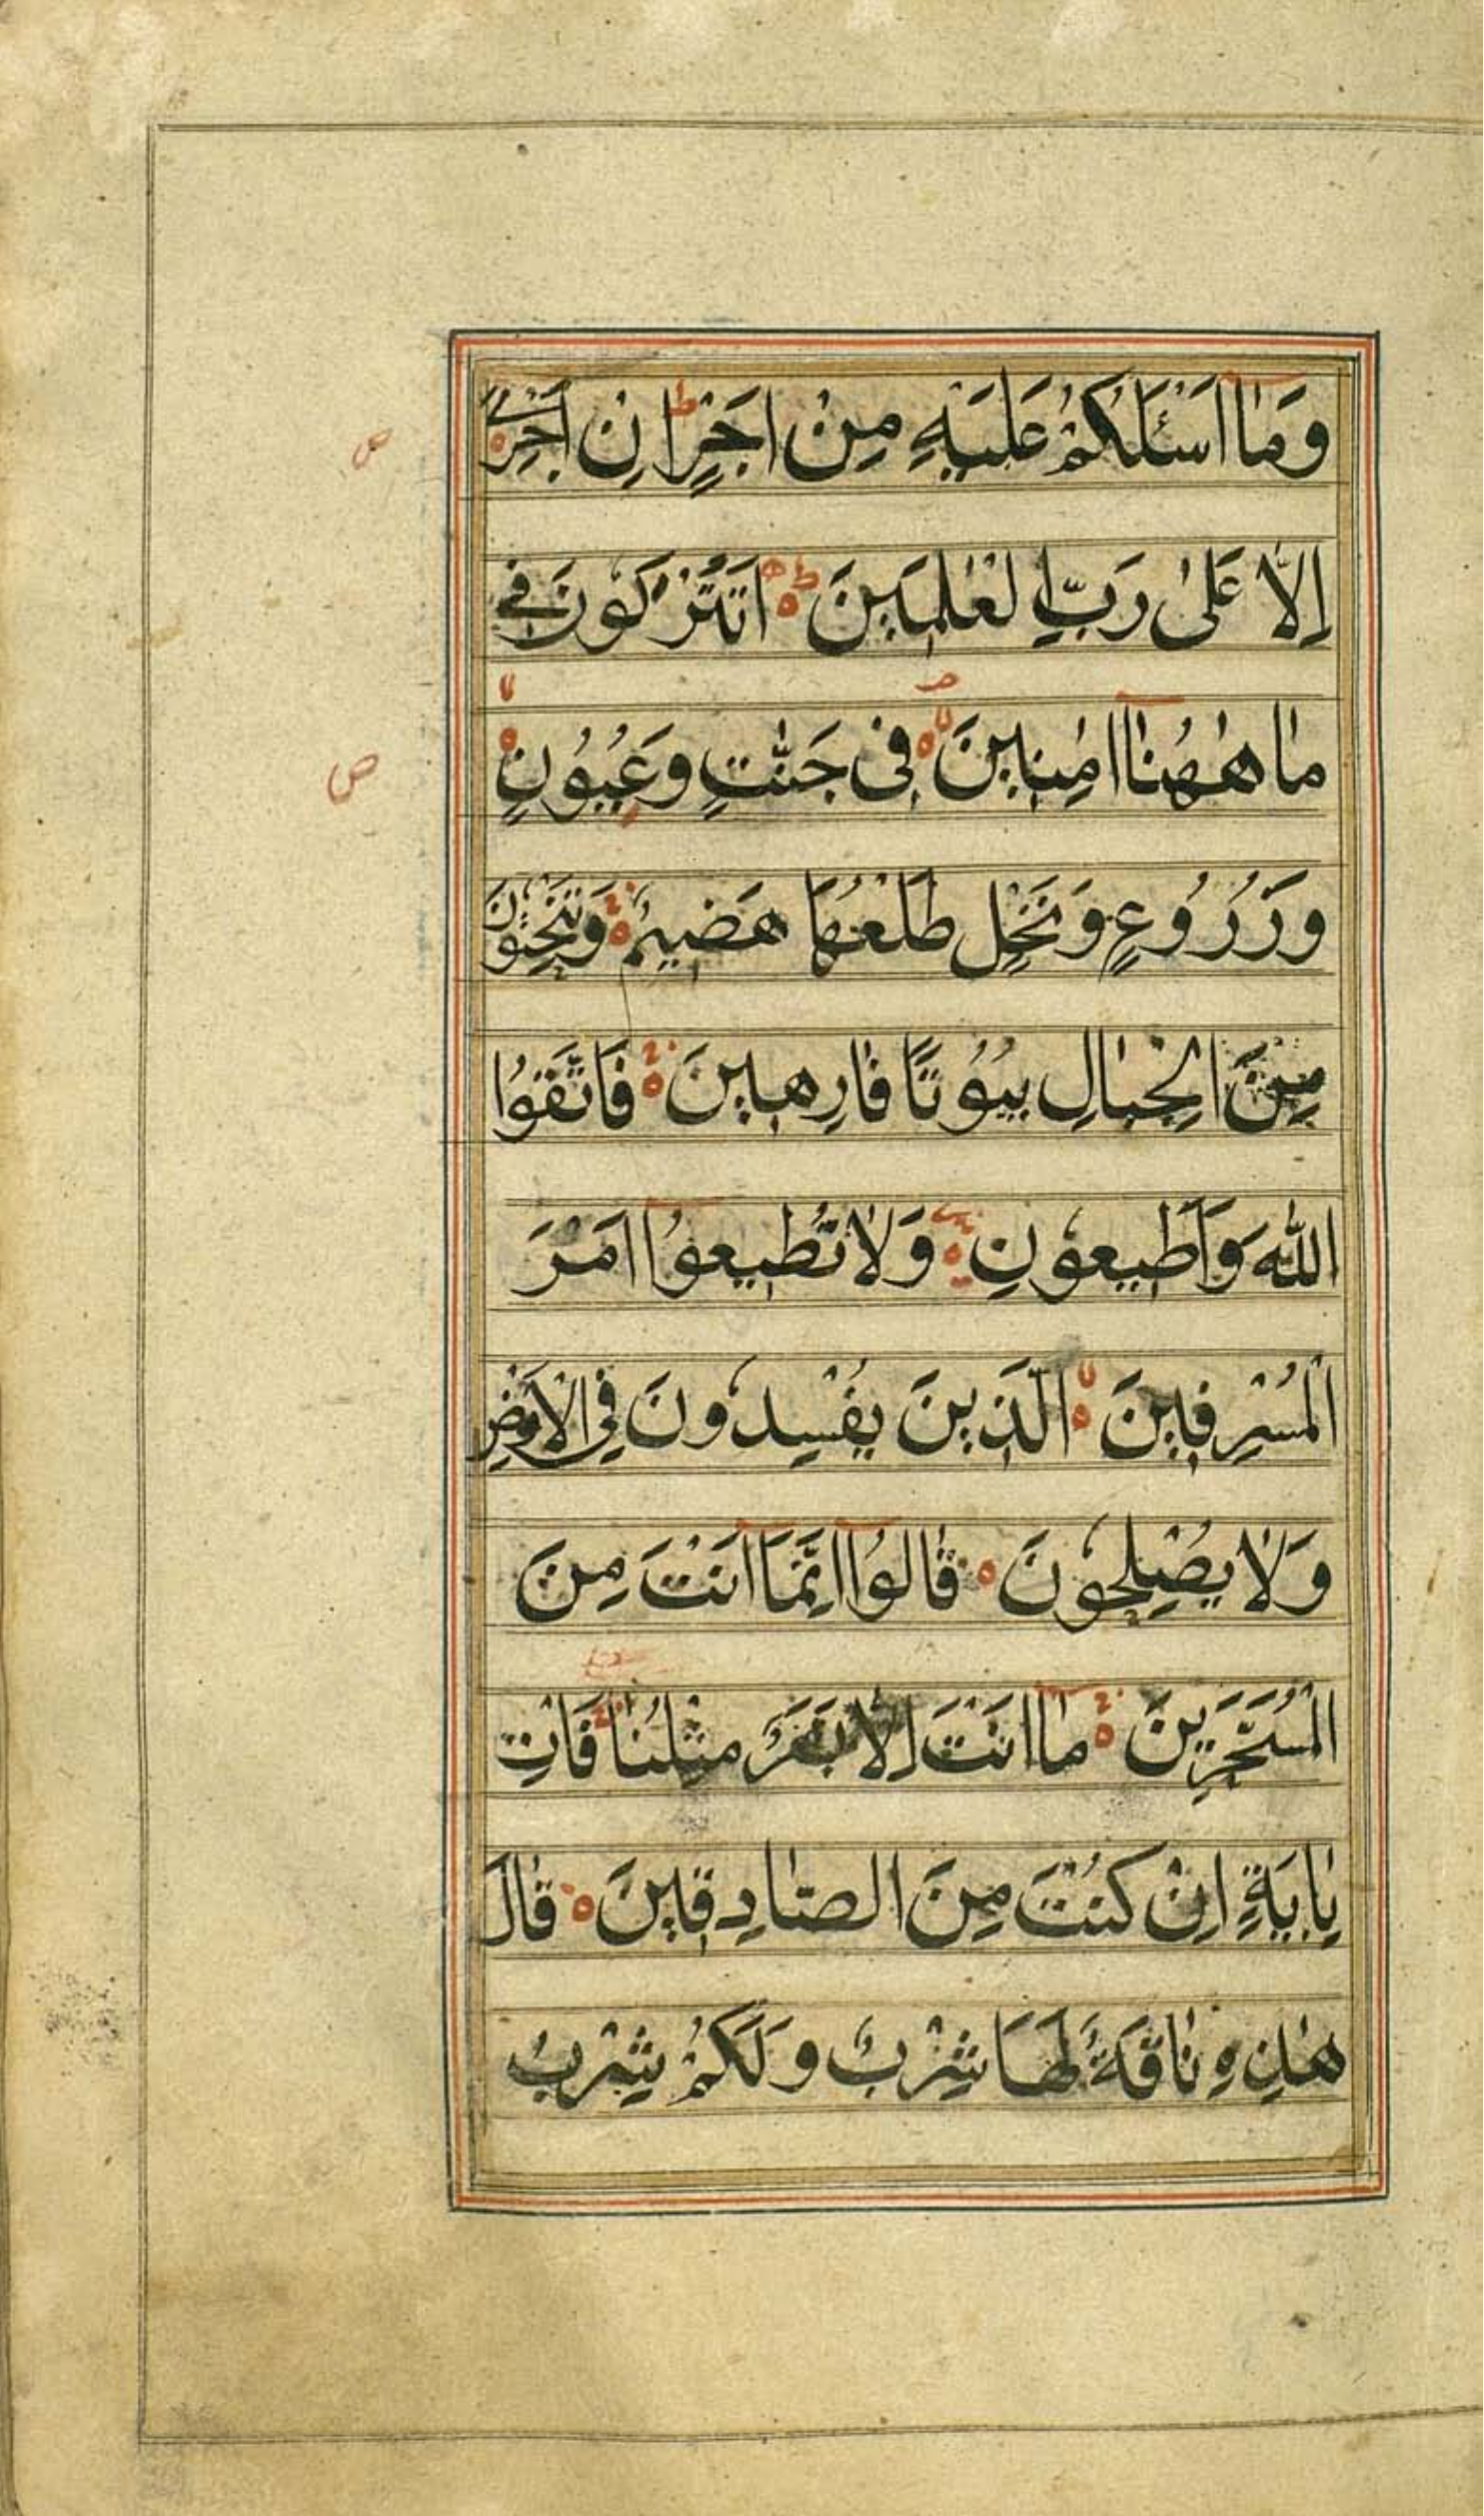 وَمَا اَسْئَلُكُمْ عَلَيْهِ مِنْ اَجْرٍ اِنْ اَجْرِيَ
اِلَّا عَلٰى رَبِّ الْعٰلَمِينَ اَتُتْرَكُونَ فِي
مَا هٰهُنَا اٰمِنِينَ فِى جَنّٰتٍ وَعُيُونٍ
وَزُرُوعٍ وَنَخْلٍ طَلْعُهَا هَضِيمٌ وَتَنْحِتُونَ
مِنَ الْجِبَالِ بُيُوتًا فَارِهِينَ فَاتَّقُوا
اللّٰهَ وَاَطِيعُونِ وَلَا تُطِيعُوا اَمْرَ
الْمُسْرِفِينَ الَّذِينَ يُفْسِدُونَ فِى الْاَرْضِ
وَلَا يُصْلِحُونَ قَالُوا اِنَّمَا اَنْتَ مِنَ
الْمُسَحَّرِينَ مَا اَنْتَ اِلَّا بَشَرٌ مِثْلُنَا فَاْتِ
بِاٰيَةٍ اِنْ كُنْتَ مِنَ الصَّادِقِينَ قَالَ
هٰذِهِ نَاقَةٌ لَهَا شِرْبٌ وَلَكُمْ شِرْبُ